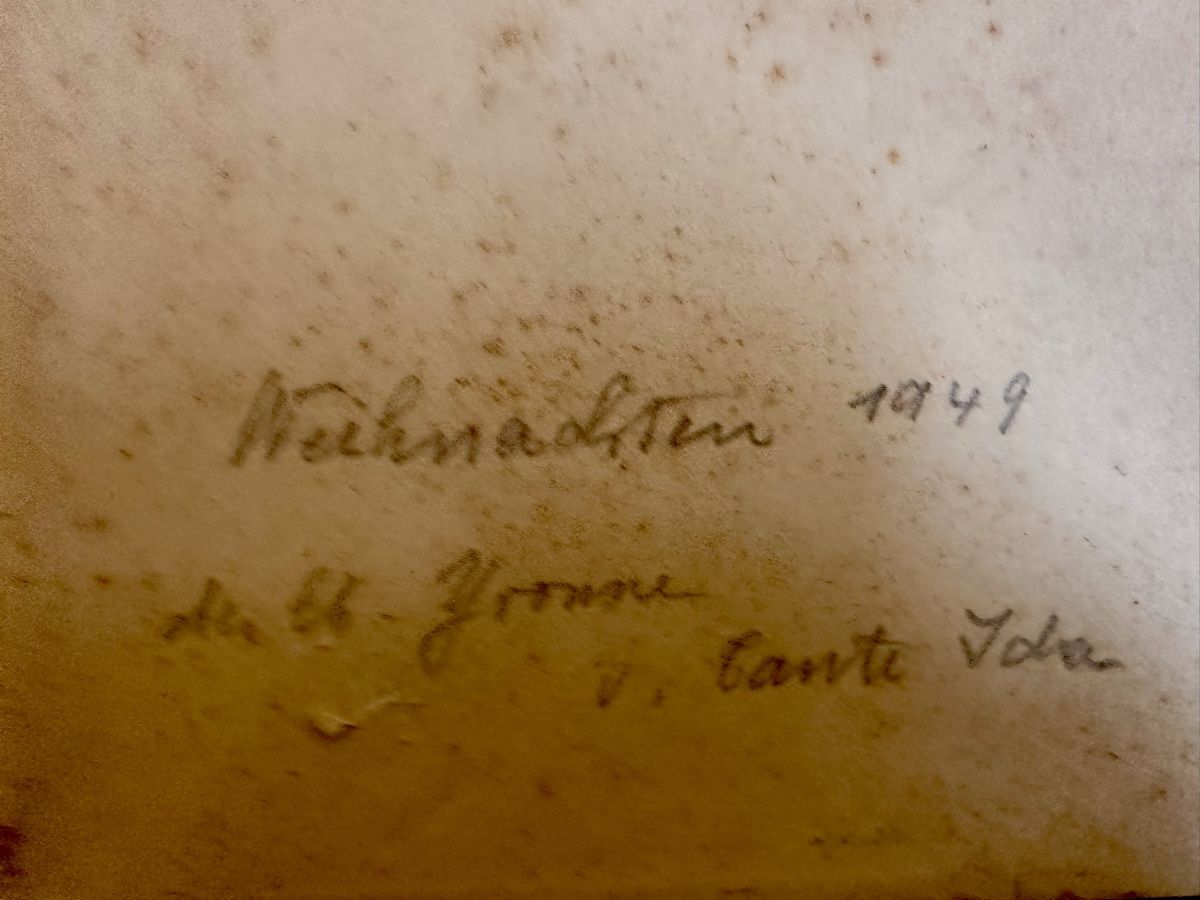 Weihnachten 1949
der lb. Yvonne
v. Tante Ida